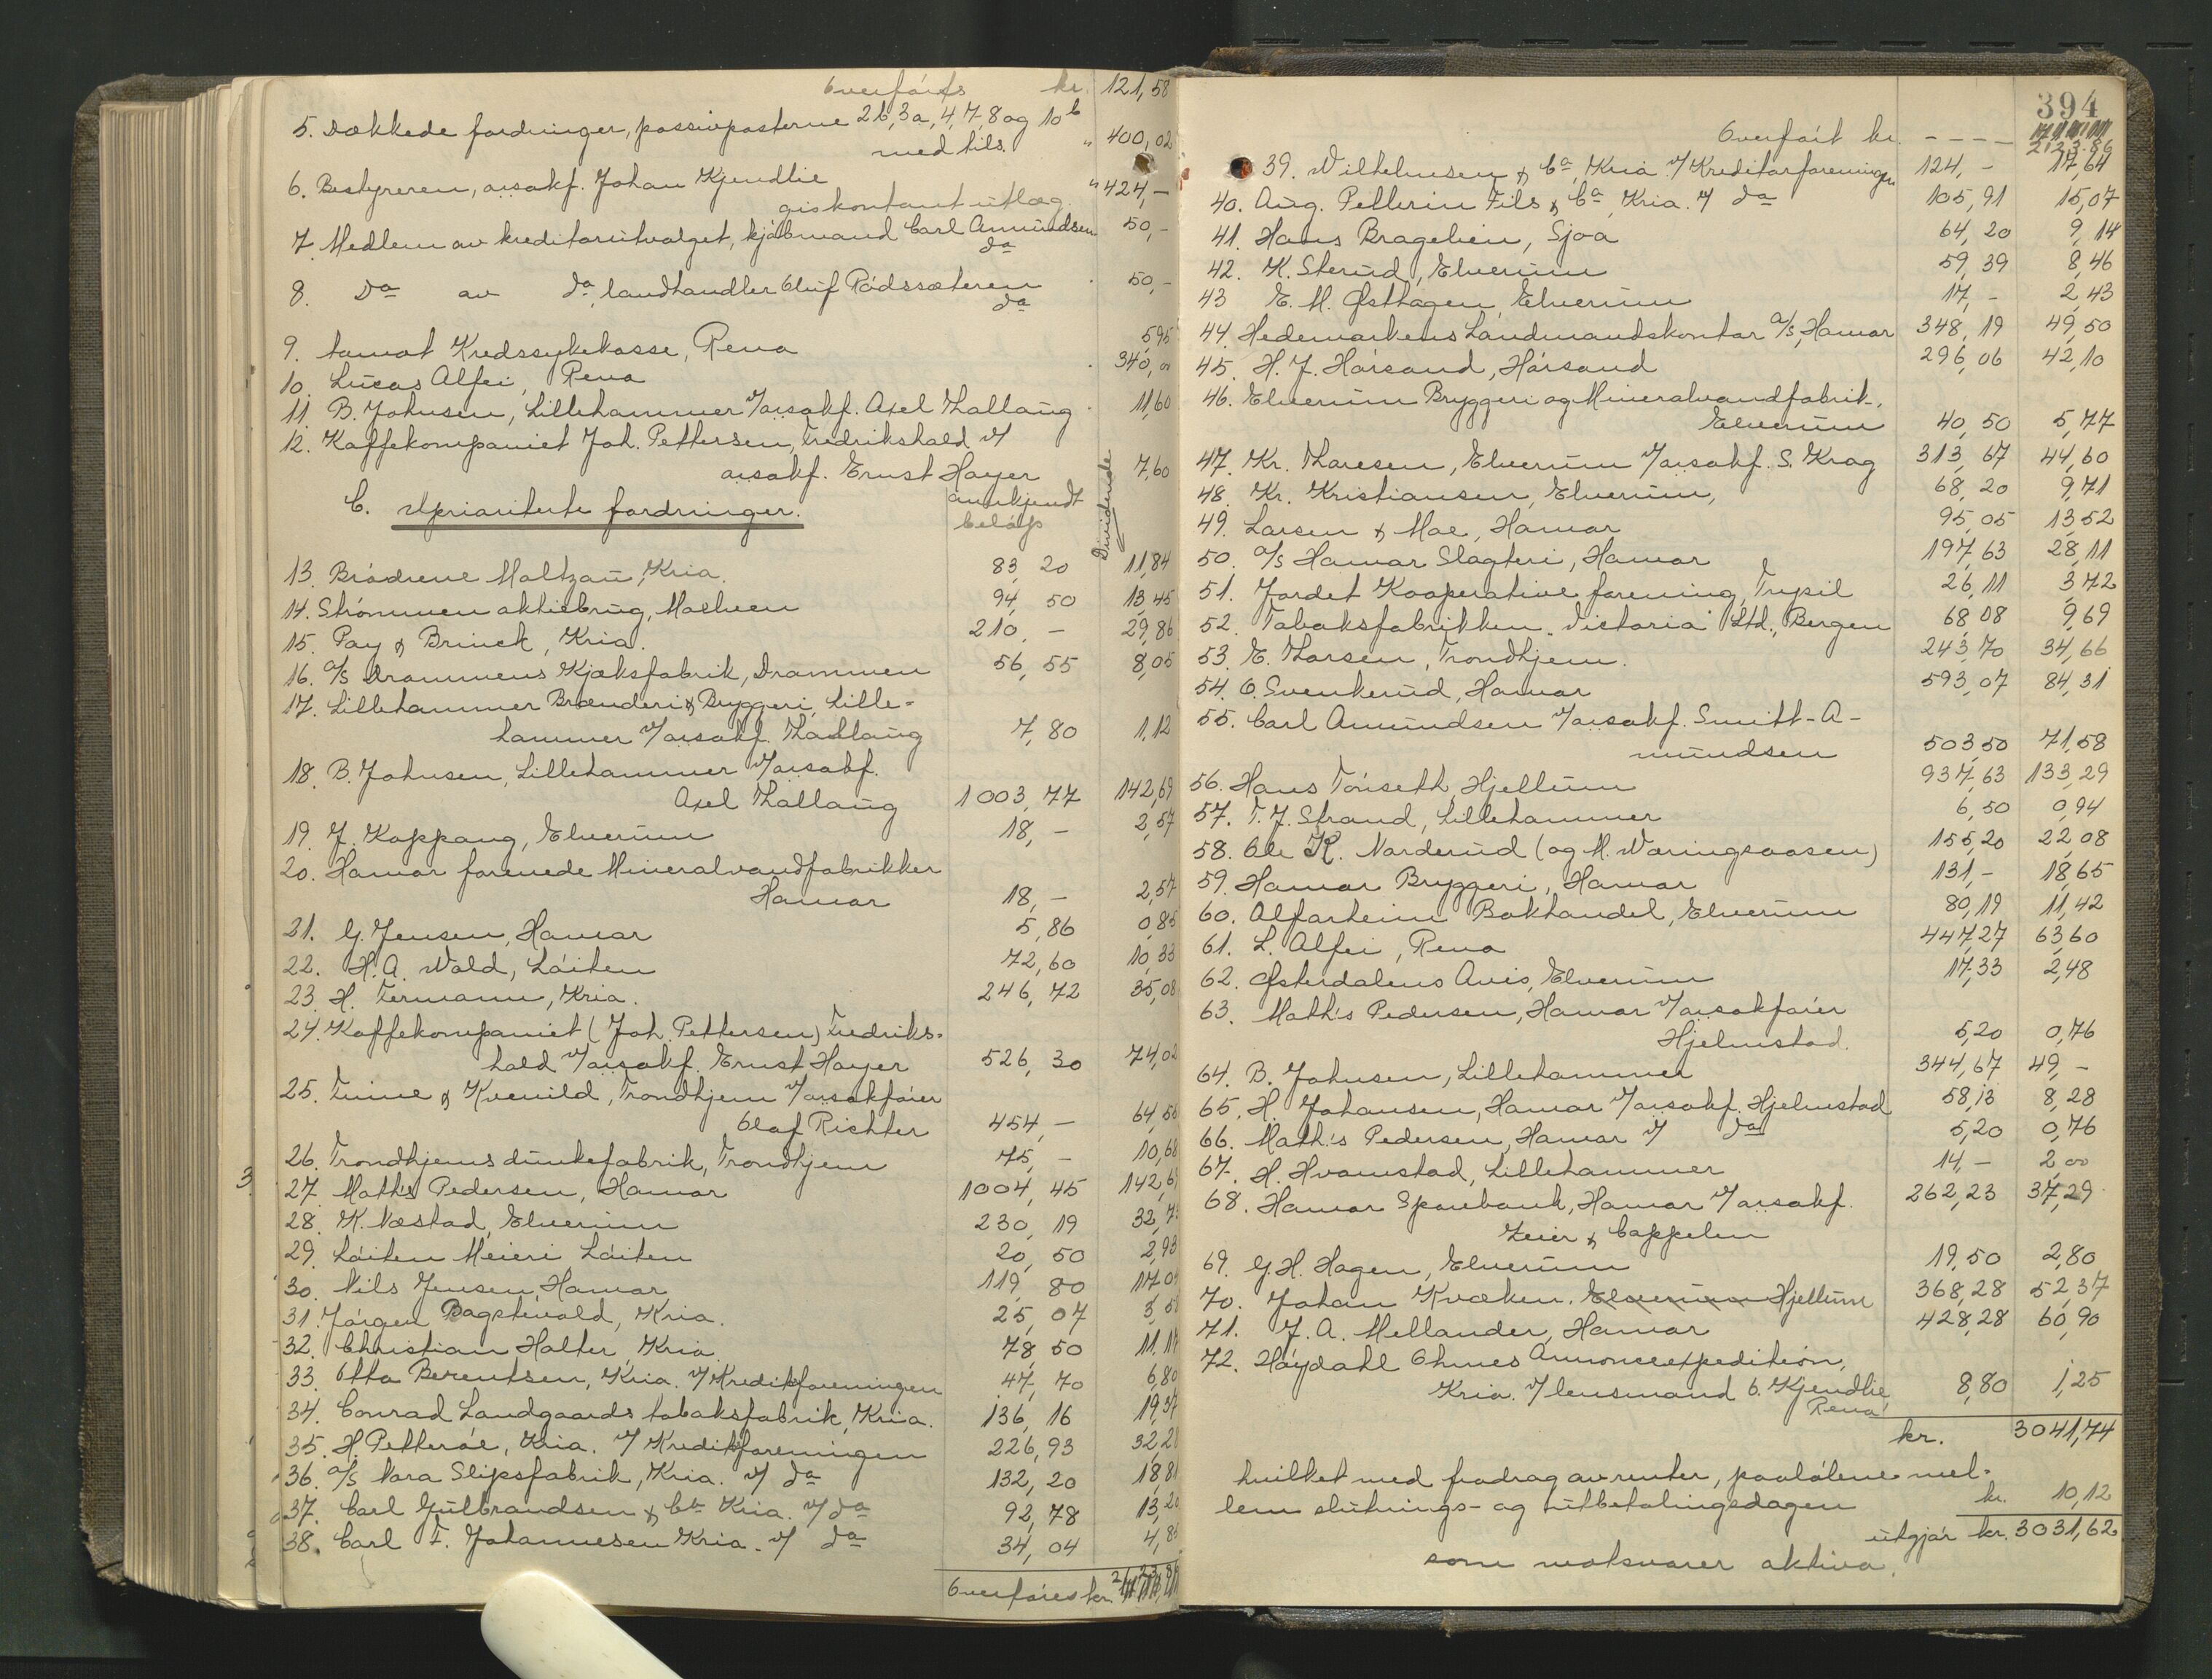 Overføres kr. 121,58
5. Dækkede fordringer, passivposterne 2b, 3a, 4, 7, 8 og 10b
med tils. " 400,02
6. Bestyreren, orsakf. Johan Kjendlie
giskontant utlæg " 424,-
7. Medlem av kreditorutvalget, kjøbmand Carl Amundsen 50,-
da
8. Da av da, landhandler Oluf Rødssæteren 50,-
da
9. Aamot Kredssykekasse, Rena 5,95
10. Lucas Alfei, Rena 340,01
11. B. Johnsen, Lillehammer v/orsakf. Axel Thallaug 11,60
12. Kaffekompaniet Joh. Pettersen, Fredrikshald v/
orsakf. Ernst Hayer 7,60
C. Uprioriterte fordringer. anerkjendt beløp Dividende
13. Brødrene Maltzau, Kria. 83,20 11,84
14. Strømmen aktiebrug, Maelven 94,50 13,45
15. Pay & Brinck, Kria. 210,- 29,86
16. A/S Drammens Kjæksfabrik, Drammen 56,55 8,05
17. Lillehammer Brænderi & Bryggeri, Lille-
hammer v/orsakf. Thallaug 7,80 1,12
18. B. Johnsen, Lillehammer v/orsakf.
Axel Thallaug 1003,77 142,69
19. J. Koppang, Elverum 18,- 2,57
20. Hamar forenede Mineralvandfabrikker
Hamar 18,- 2,57
21. G. Jensen, Hamar 5,86 0,85
22. H. A. Wold, Løiten 72,60 10,33
23. H. Fermann, Kria. 246,72 35,08
24. Kaffekompaniet (Joh. Pettersen) Fredriks-
hald v/orsakf. Ernst Hayer 526,30 74,02
25. Finne & Kvenild, Trondhjem v/orsakfører
Olaf Richter 454,- 64,56
26. Trondhjems dunkefabrik, Trondhjem 75,- 10,68
27. Math's Pedersen, Hamar 1004,45 142,6
28. K. Næstad, Elverum 230,19 32,7
29. Løiten Meieri Løiten 20,50 2,93
30. Nils Jensen, Hamar 119,80 17,0
31. Jørgen Bagstevold, Kria. 25,07 3,5
32. Christian Holter, Kria. 78,50 11,17
33. Otto Berentsen, Kria. v/Kreditforeningen 47,70 6,80
34. Conrad Landgaards tobaksfabrik, Kria. 136,16 19,37
35. H. Petterøe, Kria. v/Kreditforeningen 226,93 32,2
36. A/S Nora Slipsfabrik, Kria. v/ da 132,20 18,81
37. Carl Gulbrandsen & Co Kria. v/ da 92,78 13,20
38. Carl F. Johannesen Kria. v/ da 34,04 4,8
Overføres kr.
394
Overført kr. - - - - 2123,86
39. Wilhelmsen & Co, Kria v/Kreditorforeningen 124,- 17,64
40. Aug. Pellerin Fils & Co, Kria. v/ da 105,91 15,07
41. Hans Bragelien, Sjoa 64,20 9,14
42. K. Sterud, Elverum 59,39 8,46
43 E. M. Østhagen, Elverum 17,- 2,43
44. Hedemarkens Landmandskontor A/S, Hamar 348,19 49,50
45. H. J. Hørsand, Hørsand 296,06 42,10
46. Elverum Bryggeri og Mineralvandfabrik,
Elverum 40,50 5,77
47. Kr. Thoresen, Elverum v/orsakf. S. Krag 313,67 44,60
48. Kr. Kristiansen, Elverum, 68,20 9,71
49. Larsen & Moe, Hamar 95,05 13,52
50. A/S Hamar Slagteri, Hamar 197,63 28,11
51. Jordet Kooperative forening, Trysil 26,11 3,72
52. Tobaksfabrikken "Victoria" Ltd., Bergen 68,08 9,69
53. E. Thorsen, Trondhjem. 243,70 34,66
54. O. Svenkerud, Hamar 593,07 84,31
55. Carl Amundsen v/orsakf. Smitt-A-
mundsen 503,50 71,58
56. Hans Tønseth, Hjellum 937,63 133,29
57. T. J. Strand, Lillehammer 6,50 0,94
58. Ole K. Norderud (og M. Wæringsaasen) 155,20 22,08
59. Hamar Bryggeri, Hamar 131,- 18,65
60. Alfarheim Bokhandel, Elverum 80,19 11,42
61. L. Alfei, Rena 447,27 63,60
62. Østerdalens Avis, Elverum 17,33 2,48
63. Math's Pedersen, Hamar v/orsakfører
Hjelmstad. 5,20 0,76
64. B. Johnsen, Lillehammer 344,67 49,-
65. H. Johansen, Hamar v/orsakf. Hjelmstad 58,13 8,28
66. Math's Pedersen, Hamar v/ da 5,20 0,76
67. H. Hvamstad, Lillehammer 14,- 2,00
68. Hamar Sparebank, Hamar v/orsakf. 262,23 37,29
Zeier & Cappelen
69. G. H. Hagen, Elverum 19,50 2,80
70. Johan Kvæken, Elverum Hjellum 368,28 52,37
71. J. A. Mellander, Hamar 428,28 60,90
72. Høydahl Ohmes Annonceexpedition,
Kria. v/ lensmand O. Kjendlie 8,80 1,25
Rena
kr. 3041,74
hvilket med fradrag av renter, paaløpne mel-
lem slutnings- og utbetalingsdagen kr. 10,12
utgjør kr. 3031,62
som motsvarer aktiva.